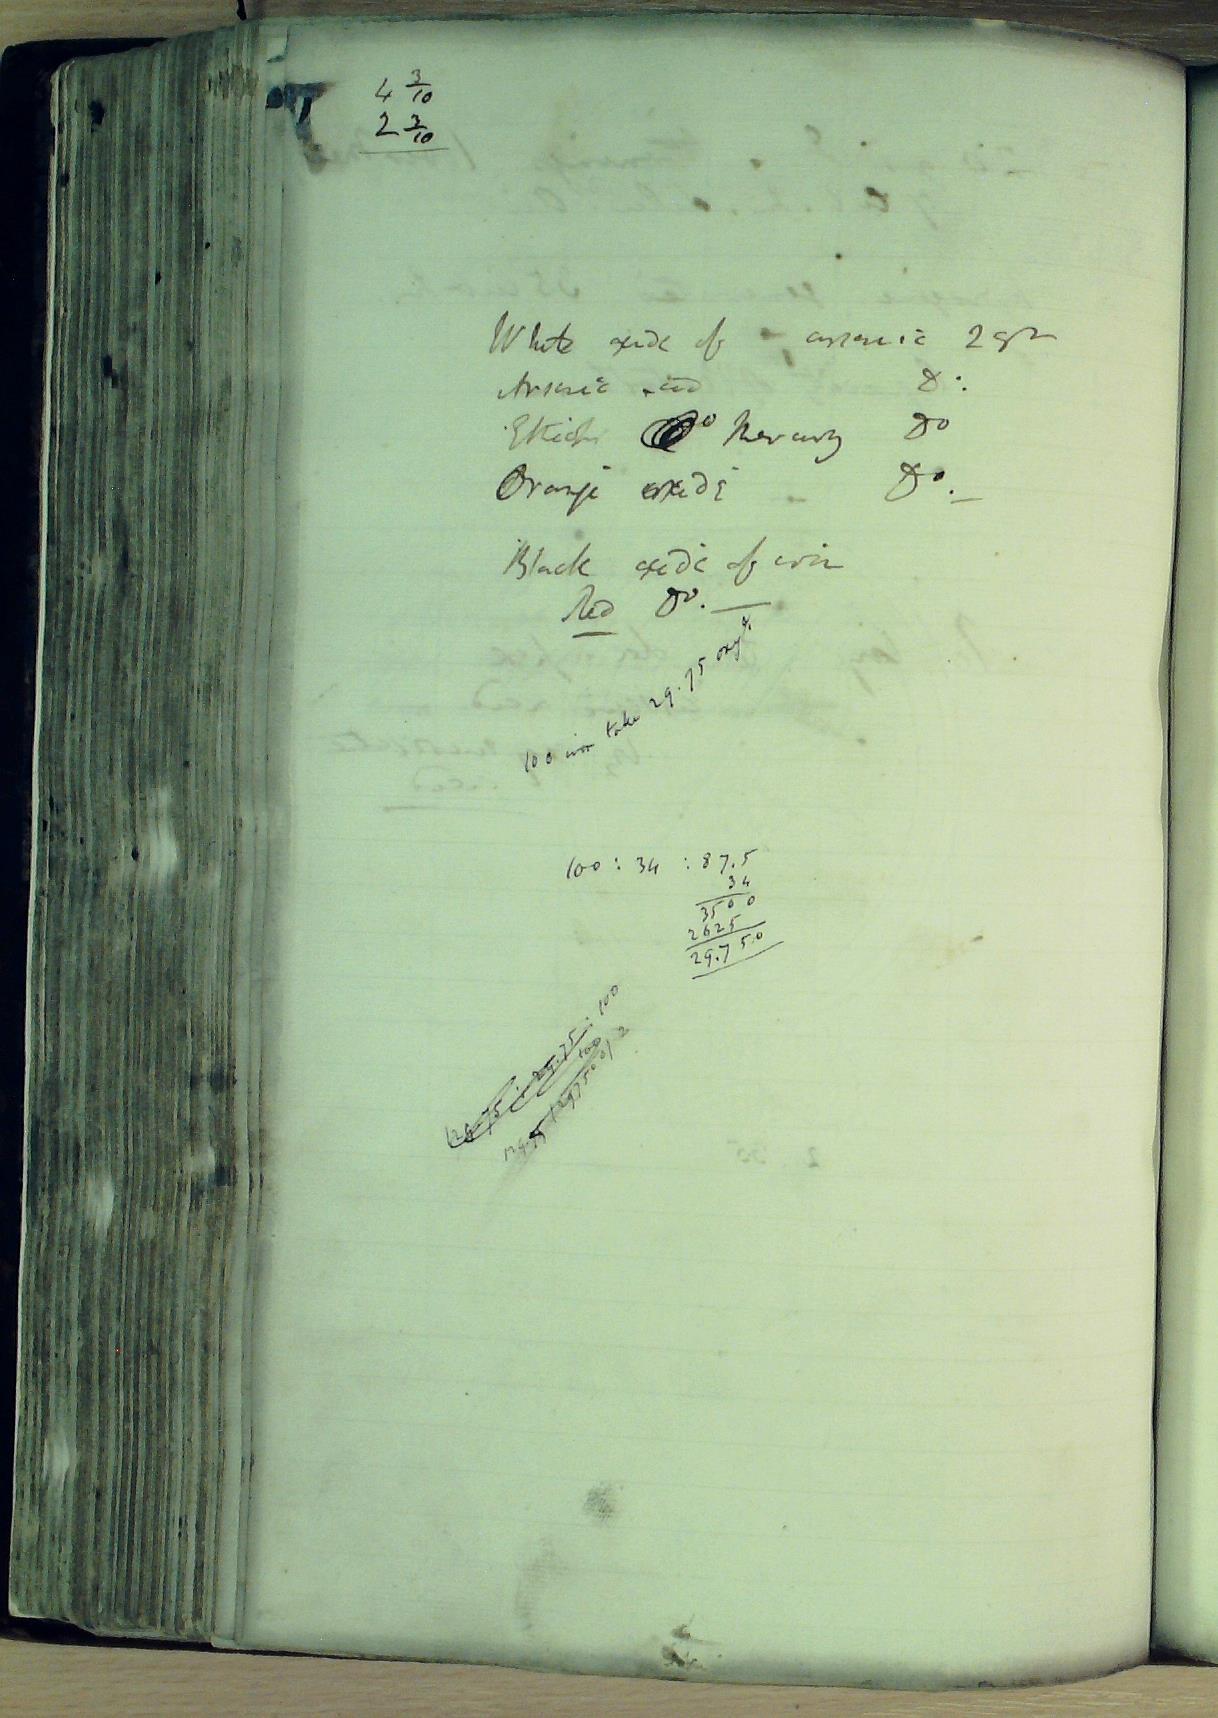 4 3/10
2 3/10
White oxide of arsenic 2 grs
Arsenic acid Do:
Ethiops Do Mercury Do
Orange oxide - Do. _
Black oxide of iron
Red Do. __
100 iron take 29.75 oxyg.
100 : 34 : 87.5
34
3500
2625
29.750
129.75 : 29.75 : 100
100